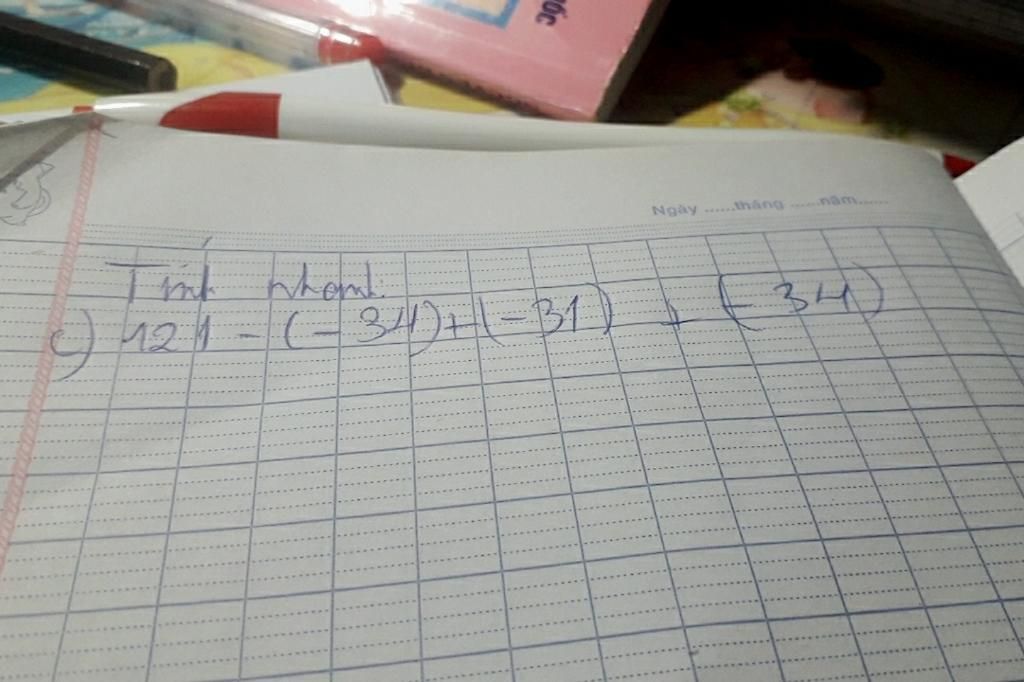 ốc
Ngày ......tháng ......năm......
Tính nhanh:
c) 121 - (-34) + (-31) + (-34)